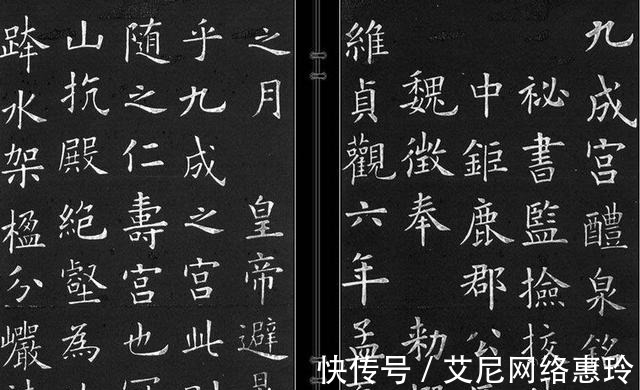 九成宮醴泉銘
祕書監撿挍
中鉅鹿郡公
魏徵奉 勑
維貞觀六年孟
之月 皇帝避
乎九成之宮此
随之仁壽宮也
山抗殿絕壑為
跨水架楹分巖
快传号 / 艾尼网络惠玲